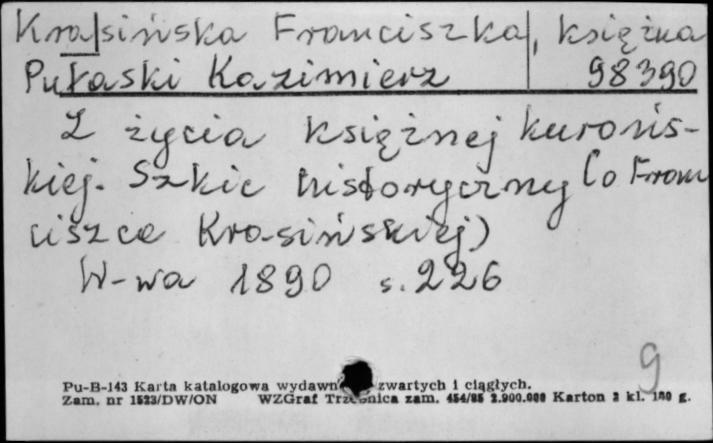 Krasińska Franciszka, księżna
Pułaski Kazimierz 98390
Z życia księżnej kurońs-
kiej. Szkic historyczny (o Fran
ciszce Krasińskiej)
W-wa 1890 s. 226
9
Pu-B-143 Karta katalogowa zwartych i ciągłych.
Zam. nr 1523/DW/ON WZGraf zam. 454/85 2.900.000 Karton 2 kl. 180 g.